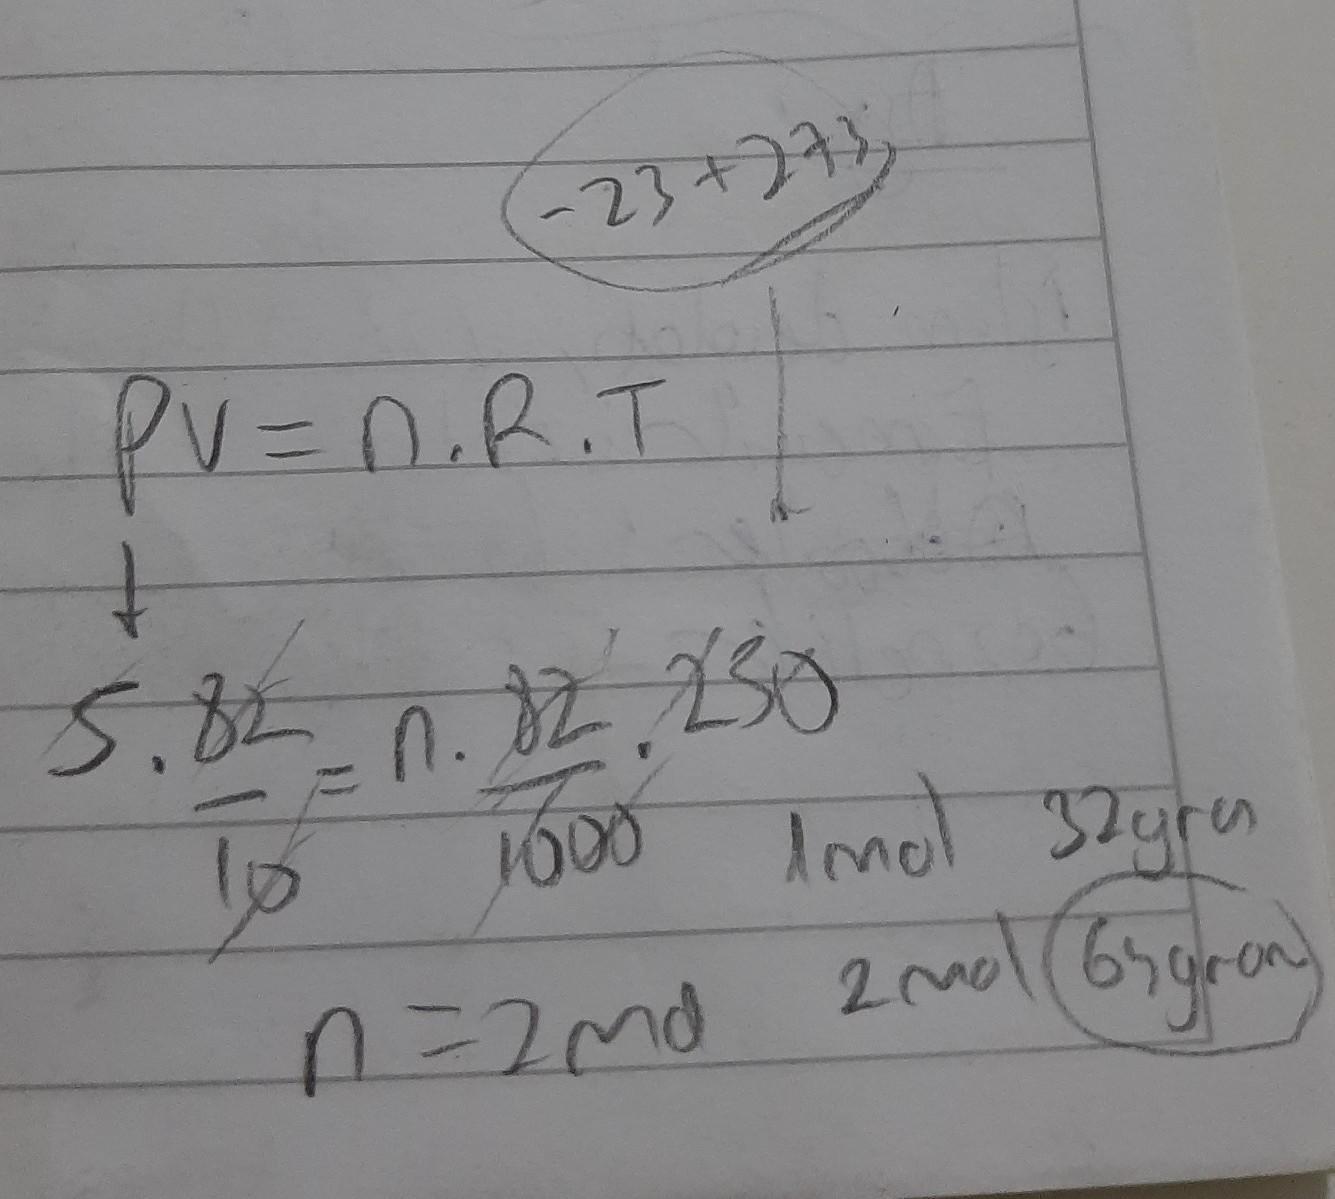 -23+273
PV = n.R.T
5 . 82/10 = n. 82/1000 . 250
1mol 32gram
2mol 64gram
n = 2mol